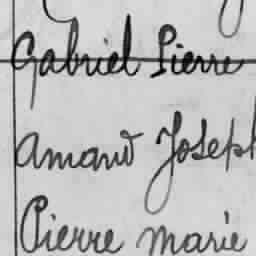 Gabriel Pierre
Amand Joseph
Pierre Marie